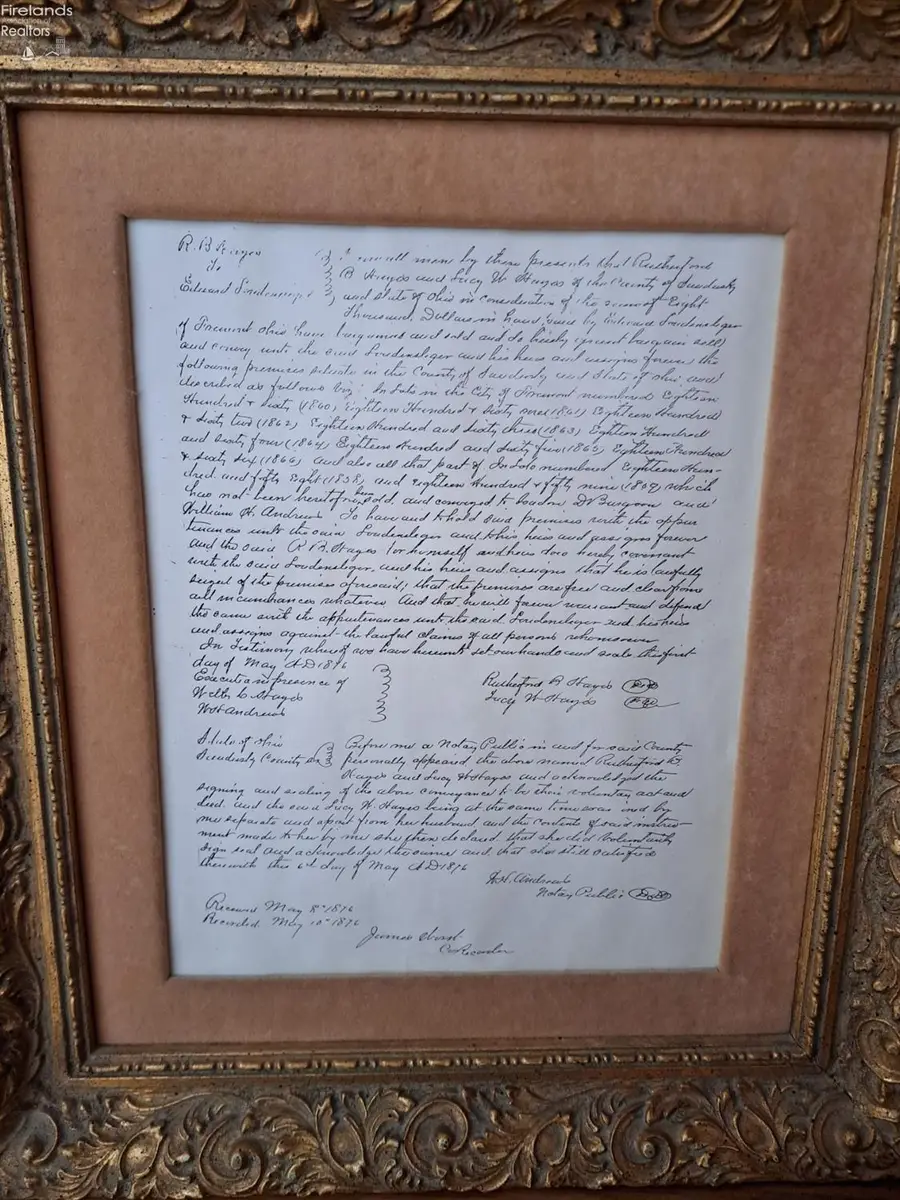 Firelands
Association of
Realtors
R. B. Hayes
to
Edward Loudensleger
Know all men by these presents that Rutherford
B Hayes and Lucy W Hayes of the County of Sandusky
and State of Ohio in consideration of the sum of Eight
Thousand Dollars in hand paid by Edward Loudensleger
of Fremont Ohio have bargained and sold and do hereby grant bargain sell
and convey unto the said Loudensleger and his heirs and assigns forever the
following premises situate in the County of Sandusky and State of Ohio and
described as follows viz: In Lots in the City of Fremont numbered Eighteen
Hundred & Sixty (1860) Eighteen Hundred & Sixty one (1861) Eighteen Hundred
& Sixty two (1862) Eighteen Hundred and Sixty three (1863) Eighteen Hundred
and Sixty four (1864) Eighteen Hundred and Sixty five (1865) Eighteen Hundred
& Sixty Six (1866) and also all that part of In Lots numbered Eighteen Hun-
dred and fifty Eight (1858) and Eighteen Hundred & fifty nine (1859) which
has not been heretofore sold and conveyed to D Burgoon and
William H. Andrews To have and to hold said premises with the appur
tenances unto the said Loudensleger and his heirs and assigns forever
and the said R. B. Hayes for himself and heirs does hereby covenant
with the said Loudensleger and his heirs and assigns that he is lawfully
seized of the premises aforesaid, that the premises are free and clear from
all incumbrances whatever And that he will forever warrant and defend
the same with the appurtenances unto the said Loudensleger and his heirs
and assigns against the lawful claims of all persons whomsoever
In Testimony whereof we have hereunto set our hands and seals this first
day of May AD 1876
Executed in presence of
Webb C. Hayes
W H Andrews
Rutherford B Hayes
Lucy W Hayes
State of Ohio
Sandusky County ss
Before me a Notary Public in and for said County
personally appeared the above named Rutherford B
Hayes and Lucy W Hayes and acknowledged the
signing and sealing of the above conveyance to be their voluntary act and
deed, and the said Lucy W. Hayes being at the same time examined by
me separate and apart from her husband, and the contents of said instru-
ment made to her by me she then declared that she did voluntarily
sign seal and acknowledge the same and that she is still satisfied
therewith this day of May AD 1876
W H. Andrews
Notary Public
Received May 8" 1876
Recorded May 10" 1876
James
C Recorder